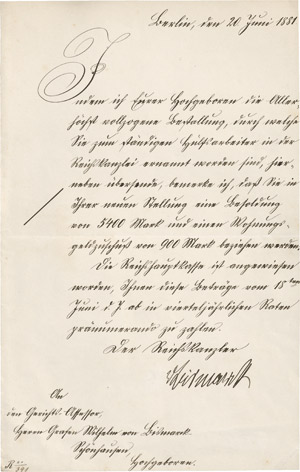 Berlin, den 20 Juni 1881
Indem ich Eurer Hochgeboren die Aller-
höchst vollzogene Bestallung, durch welche
Sie zum ständigen Hülfsarbeiter in der
Reichskanzlei ernannt worden sind, hier-
neben übersende, bemerke ich, daß Sie in
Ihrer neuen Stellung eine Besoldung
von 5400 Mark und einen Wohnungs-
geldzuschuß von 900 Mark beziehen werden.
Die Reichshauptkasse ist angewiesen
worden, Ihnen diese Beträge vom 15ten
Juni d. J. ab in vierteljährlichen Raten
pränumerando zu zahlen.
Der Reichskanzler
v Bismarck
An
den Gerichts-Assessor,
Herrn Grafen Wilhelm von Bismarck
Schönhausen
Hochgeboren.